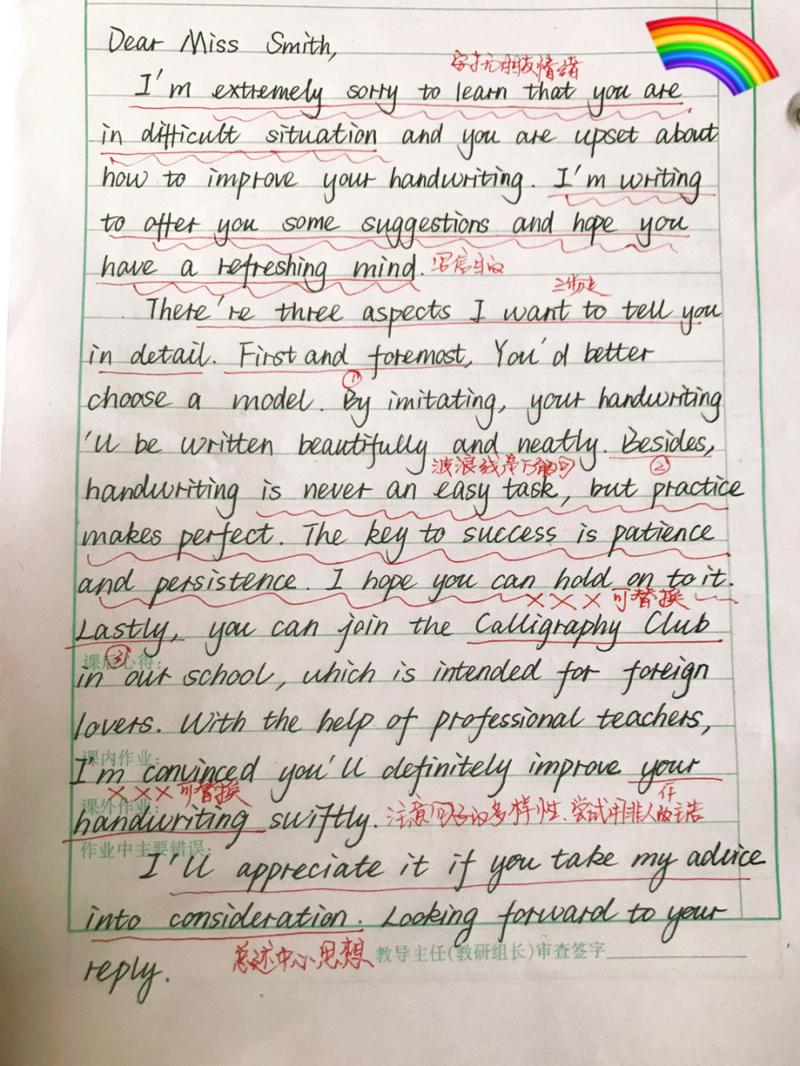 Dear Miss Smith,
安抚朋友情绪
I'm extremely sorry to learn that you are
in difficult situation and you are upset about
how to improve your handwriting. I'm writing
to offer you some suggestions and hope you
have a refreshing mind. 写信目的
There're three aspects I want to tell you
in detail. First and foremost, You'd better
①
choose a model. By imitating, your handwriting
'll be written beautifully and neatly. Besides,
波浪线是万能句 ②
handwriting is never an easy task, but practice
makes perfect. The key to success is patience
and persistence. I hope you can hold on to it.
××× 可替换
Lastly, you can join the Calligraphy Club
课后心得: ③
in our school, which is intended for foreign
lovers. With the help of professional teachers,
课内作业:
I'm convinced you'll definitely improve your
××× 可替换
课外作业:
handwriting swiftly. 注意句子的多样性、尝试用非人作主语
作业中主要错误:
I'll appreciate it if you take my advice
into consideration. Looking forward to your
总述中心思想 教导主任(教研组长)审查签字
reply.